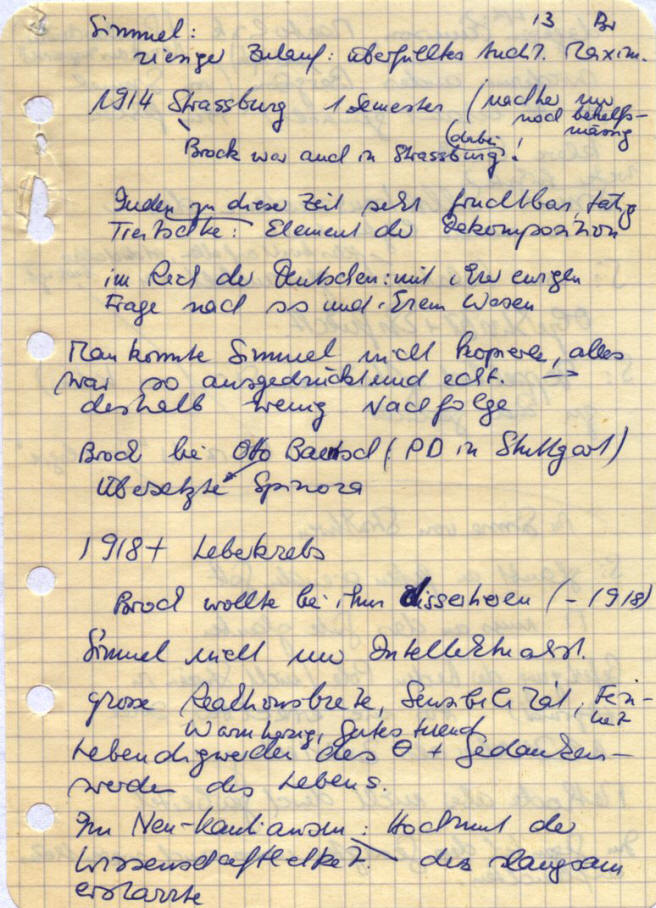 13 Br
Simmel:
riesiger Zulauf: überfülltes Maxim.
1914 Strassburg 1 Semester (nachher nur
noch behelfs-
mässig
(dabei
Brock war auch in Strassburg!
Juden zu dieser Zeit sehr fruchtbar tätig
Treitschke: Element der Dekomposition
im Reich der Deutschen: mit ihrer ewigen
Frage nach so und ihrem Wesen
Man konnte Simmel nicht kopieren, alles
war so ausgedrückt und echt. →
deshalb wenig Nachfolge
Brock bei Otto Baensch (PD in Stuttgart)
übersetzte Spinoza
1918 + Leberkrebs
Brock wollte bei ihm dissertieren (- 1918)
Simmel nicht nur Intellektualist.
grosse Reaktionsbreite, Sensibilität, Fein-
heit
Warmherzig, Gutes tuend
Lebendigwerden des θ + Gedanken-
werden des Lebens.
Im Neu-Kantianismus: Hochmut der
Wissenschaftlichkeit. des langsam
erstarrte